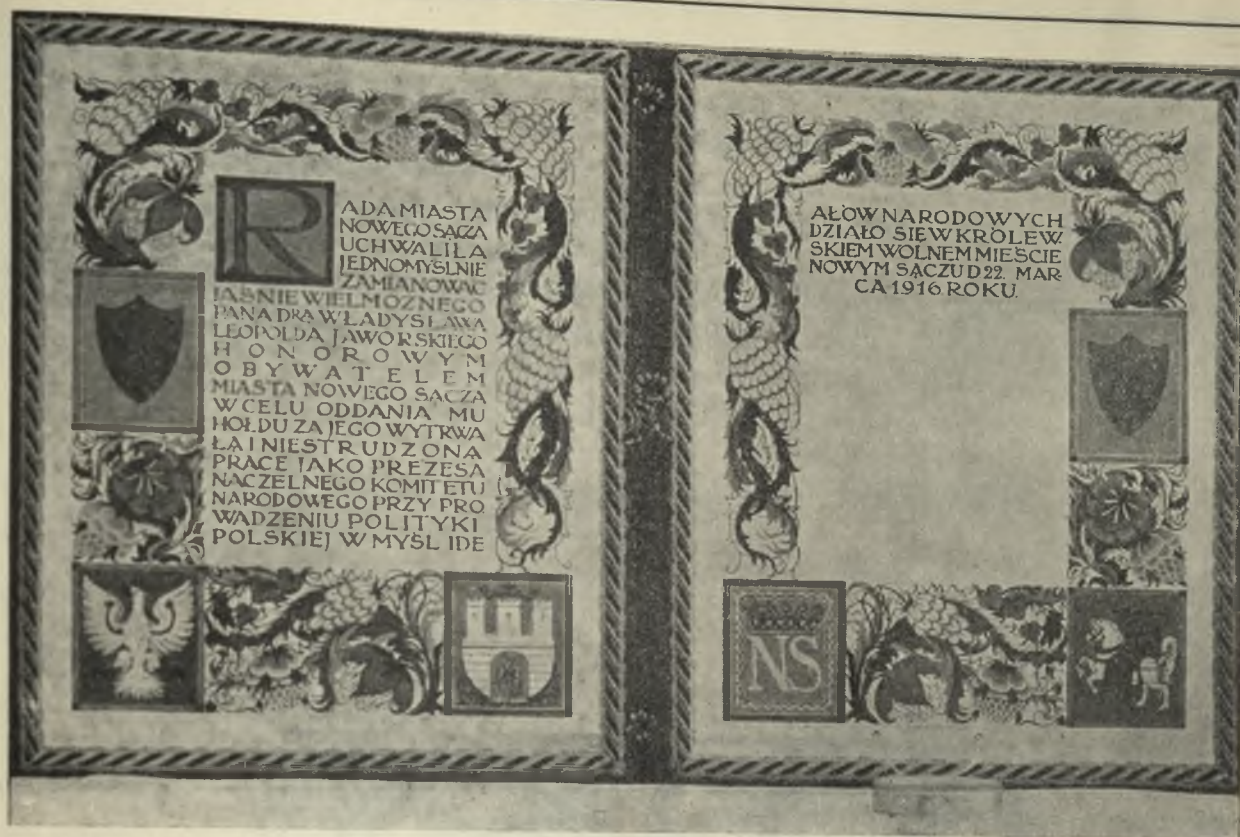 RADA MIASTA
NOWEGO SĄCZA
UCHWALIŁA
JEDNOMYŚLNIE
ZAMIANOWAĆ
JAŚNIE WIELMOŻNEGO
PANA DRA WŁADYSŁAWA
LEOPOLDA JAWORSKIEGO
HONOROWYM
OBYWATELEM
MIASTA NOWEGO SĄCZA
W CELU ODDANIA MU
HOŁDU ZA JEGO WYTRWA
ŁĄ I NIESTRUDZONĄ
PRACĘ JAKO PREZESA
NACZELNEGO KOMITETU
NARODOWEGO PRZY PRO
WADZENIU POLITYKI
POLSKIEJ W MYŚL IDE
AŁÓW NARODOWYCH
DZIAŁO SIĘ W KRÓLEW.
SKIEM WOLNEM MIEŚCIE
NOWYM SĄCZU D 22. MAR-
CA 1916 ROKU.
NS